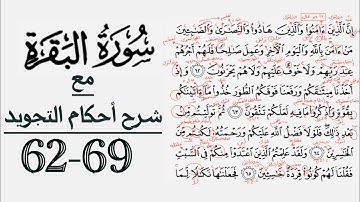 سورة البقرة
مع
شرح أحكام التجويد
62-69
إِنَّ ٱلَّذِينَ ءَامَنُوا۟ وَٱلَّذِينَ هَادُوا۟ وَٱلنَّصَـٰرَىٰ وَٱلصَّـٰبِـِٔينَ
مَنْ ءَامَنَ بِٱللَّهِ وَٱلْيَوْمِ ٱلْـَٔاخِرِ وَعَمِلَ صَـٰلِحًا فَلَهُمْ أَجْرُهُمْ
عِندَ رَبِّهِمْ وَلَا خَوْفٌ عَلَيْهِمْ وَلَا هُمْ يَحْزَنُونَ ٦٢ وَإِذْ
أَخَذْنَا مِيثَـٰقَكُمْ وَرَفَعْنَا فَوْقَكُمُ ٱلطُّورَ خُذُوا۟ مَآ ءَاتَيْنَـٰكُم
بِقُوَّةٍ وَٱذْكُرُوا۟ مَا فِيهِ لَعَلَّكُمْ تَتَّقُونَ ٦٣ ثُمَّ تَوَلَّيْتُم مِّنۢ
بَعْدِ ذَٰلِكَ فَلَوْلَا فَضْلُ ٱللَّهِ عَلَيْكُمْ وَرَحْمَتُهُۥ لَكُنتُم مِّنَ
ٱلْخَـٰسِرِينَ ٦٤ وَلَقَدْ عَلِمْتُمُ ٱلَّذِينَ ٱعْتَدَوْا۟ مِنكُمْ فِى ٱلسَّبْتِ
فَقُلْنَا لَهُمْ كُونُوا۟ قِرَدَةً خَـٰسِـِٔينَ ٦٥ فَجَعَلْنَـٰهَا نَكَـٰلًا لِّمَا